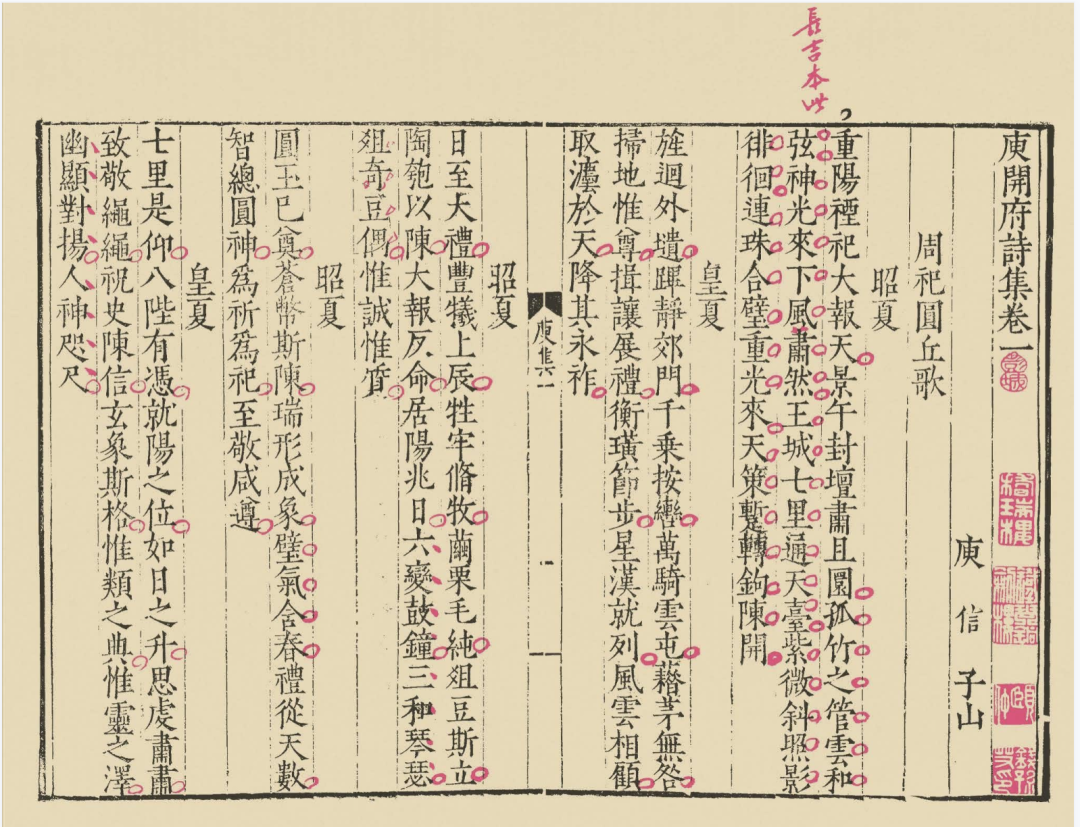 長吉本此
庾開府詩集卷一
庾信子山
周祀圓丘歌
昭夏
重陽禋祀大報天景午封壇肅且圜孤竹之管雲和
弦神光來下風肅然王城七里通天臺紫微斜照影
徘徊連珠合璧重光來天策蹔轉鉤陳開
皇夏
旌迴外壝蹕靜郊門千乗按轡萬騎雲屯藉茅無咎
掃地惟尊揖讓展禮衡璜節步星漢就列風雲相顧
取灋於天降其永祚
庾集一
昭夏
日至大禮豐犧上辰牲牢脩牧繭栗毛純俎豆斯立
陶匏以陳大報反命居陽兆日六變鼓鐘三和琴瑟
俎奇豆偶惟誠惟質
昭夏
圓玉已奠蒼幣斯陳瑞形成象璧氣含春禮從天數
智總圓神爲祈爲祀至敬咸遵
皇夏
七里是仰八陛有馮就陽之位如日之升思虔肅肅
致敬繩繩祝史陳信玄象斯格惟類之典惟靈之澤
幽顯對揚人神咫尺